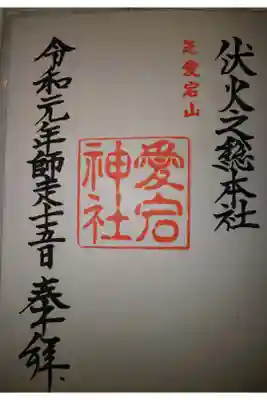 伏火之総本社
芝愛宕山
愛宕
神社
令和元年師走十五日 奉拝